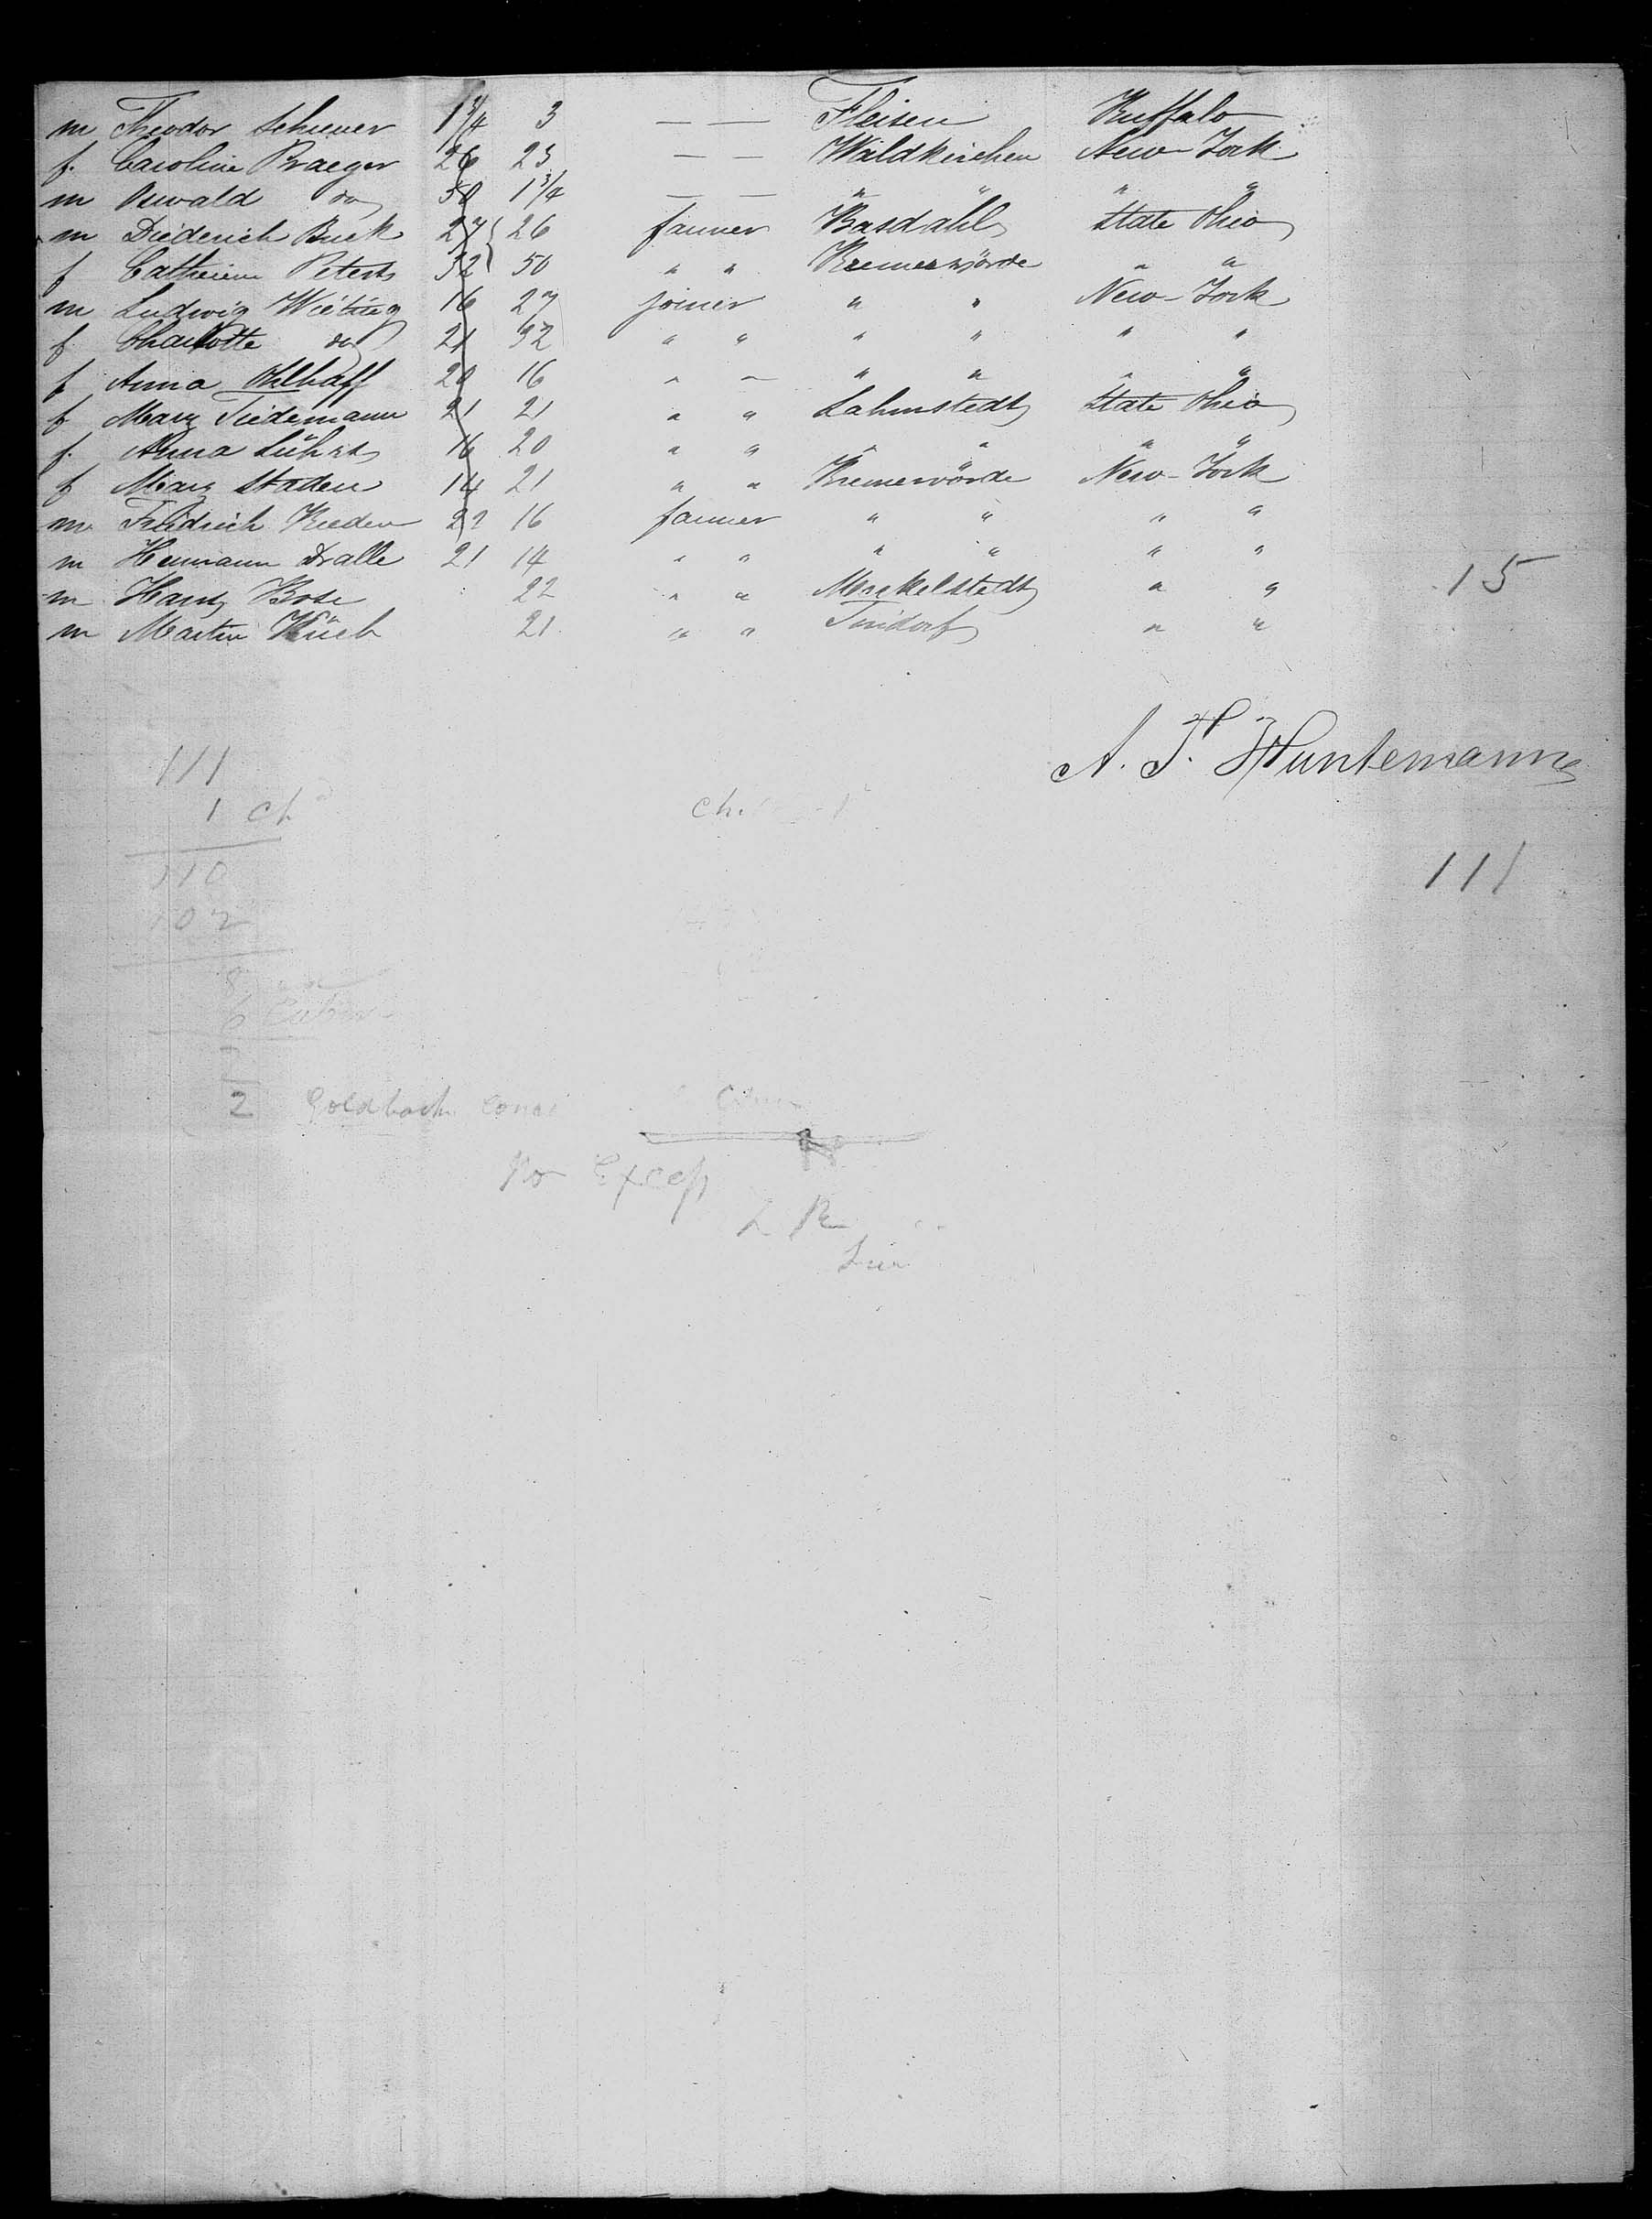 m Theodor Scheuer 1 3/4 3 — — Fleisen Buffalo
f. Caroline Praeger 26 23 — — Waldkirchen New-York
m Oswald do 50 1 3/4 — — " " " "
m Diederich Buck 27 26 farmer Basdahl State Ohio
f Catharine Peters 32 50 " " Bremervörde " "
m Ludwig Wietting 16 27 joiner " " New-York
f. Charlotte do 21 32 " " " " " "
f Anna Ohlhaff 20 16 " " " " " "
f Mary Tiedemann 21 21 " " Lahmstedt State Ohio
f. Anna Lührs 16 20 " " " " " "
f Mary Staden 14 21 " " Bremervörde New-York
m Friedrich Breden 22 16 farmer " " " "
m Hermann Dralle 21 14 " " " " " "
m Hans Bose 22 " " Meckelstedt " " 15
m Martin Küch 21 " " " "
A. F. Huntemann
111
1 ch
110
102
8
6 Cabin
2 Goldbach
ch.
111
No Excess